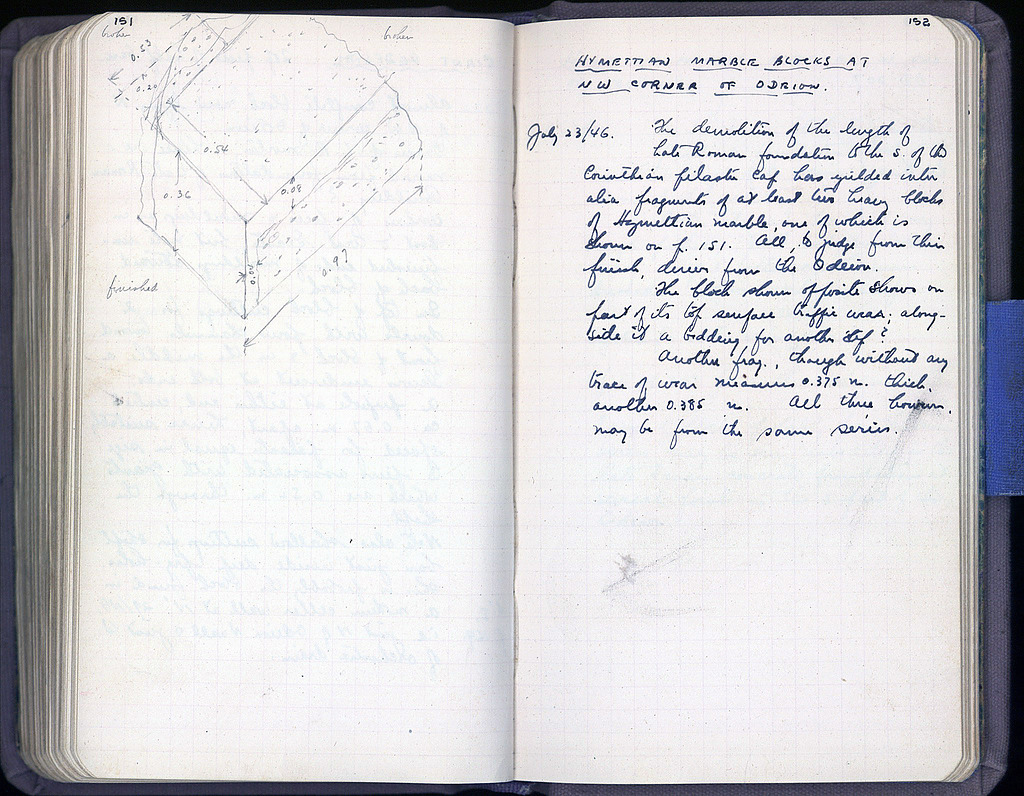 151
broken
broken
0.53
0.20
0.54
0.36
0.08
0.97
finished
152
HYMETTIAN MARBLE BLOCKS AT
NW CORNER OF ODEION.
July 23/46. The demolition of the length of
Late Roman foundation to the S. of the
Corinthian pilaster cap has yielded inter
alia fragments of at least two heavy blocks
of Hymettian marble, one of which is
shown on p. 151. All, to judge from their
finish, derive from the Odeion.
The block shown opposite shows on
part of its top surface traffic wear; along-
side it a bedding for another step?
Another frag., though without any
trace of wear measures 0.375 m. thick,
another 0.385 m. All three however,
may be from the same series.